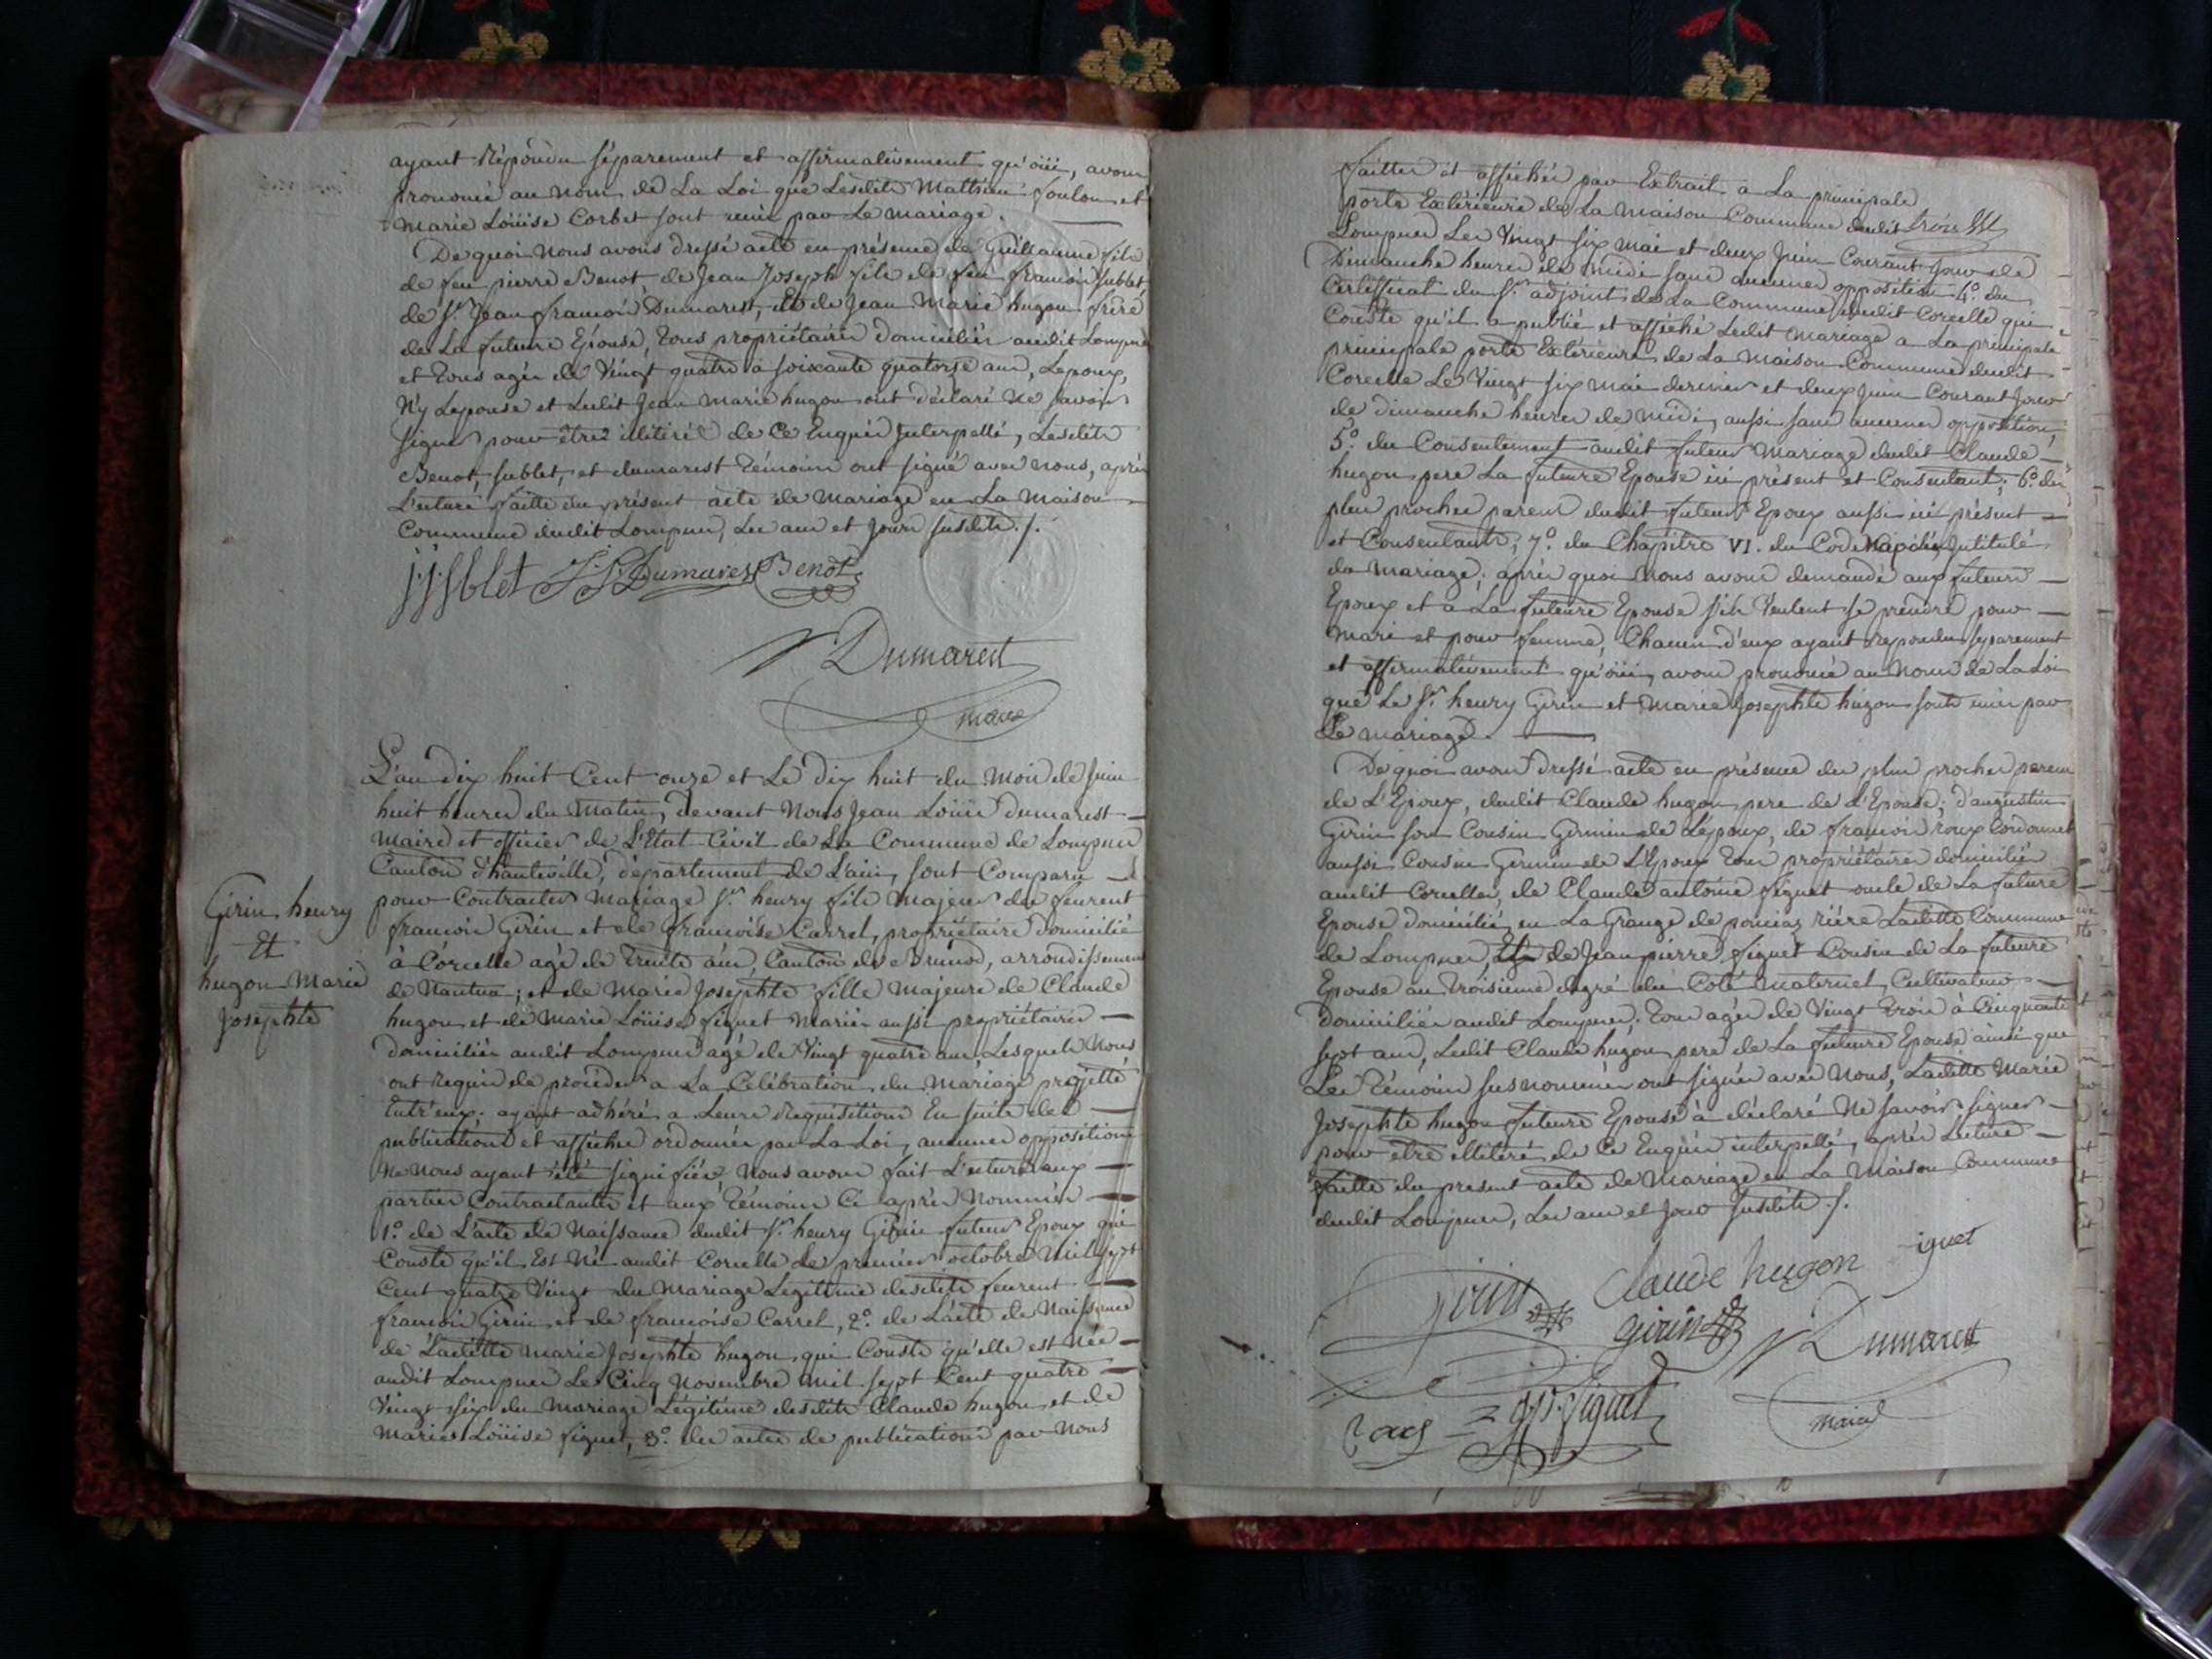 ayant Répondu séparement et affirmativement qu'oüi, avons
prononcé au nom de La Loi que Lesdits Matthieu foulon et
Marie Loüise Corbet sont unis par Le mariage.
De quoi nous avons dressé acte en présence de Guillaume fils
de feu pierre Benot, de Jean Joseph fils de feu françois Sublet
de Sr. Jean françois Dumarest, Et de Jean Marie hugon frère
de La future Epouse, Tous propriétaires domiciliés audit Lompnes
et Tous agés de Vingt quatre à soixante quatorze ans, Lepoux,
N'y Lepouse et Ledit Jean Marie hugon ont déclaré Ne savoir
signer pour être illitéré de Ce Enquis Interpellé, Lesdits
Benot, Sublet, et dumarest Témoins ont signé avec nous, après
L'ecture faitte du présent acte de Mariage en La Maison
Commune dudit Lompnes, Les an et Jours susdits ./.
j.j. Sblet J. f. Dumarest Benot
Dumarest
maire
L'an dix huit Cent onze et Le dix huit du Mois de Juin
huit heures du Matin, devant Nous Jean Loüis dumarest
Maire et officier de L'Etat Civil de La Commune de Lompnes
Canton d'hauteville, département de L'ain, sont Comparu
pour Contracter Mariage Sr. henry fils Majeur de feurent
françois Girin et de françoise Carrel, propriétaire domicilié
à Corcelle agé de Trente ans, Canton de Brénod, arrondissement
de Nantua; et de Marie Josephte fille Majeure de Claude
hugon et de Marie Loüise figuet Mariés aussi propriétaires
domiciliés audit Lompnes agé de Vingt quatre ans Lesquels Nous
ont requis de procéder a La Célébration du Mariage projetté
Entr'eux. ayant adhéré a Leurs Requisitions En suite des
publications et affiches ordonnées par La Loi, aucunes oppositions
Ne Nous ayant été signifiées, Nous avons fait L'ecture aux
parties Contractantes et aux Témoins Ci après Nommés
1.° de L'acte de Naissance dudit Sr. henry Girin futur Epoux qui
Conste qu'il Est Né audit Corcelle Le premier octobre Mil sept
Cent quatre Vingt du Mariage Legittime desdits feurent
françois Girin et de françoise Carrel, 2.° de L'acte de Naissance
de Laditte Marie Josephte hugon, qui Conste qu'elle est Née
audit Lompnes Le Cinq Novembre Mil sept Cent quatre
Vingt six du Mariage Légitime desdits Claude hugon et de
Marie Loüise figuet, 3.° des actes de publications par Nous
Girin henry
Et
hugon Marie
Josephte
faittes et affichées par Extrait a La principale
porte Extérieure de La Maison Commune dudit
Lompnes Les Vingt six mai et deux Juin Courant Jour de
Dimanche heures de midi sans aucunes opposition 4.° du
Certifficat du Sr. adjoint de La Commune dudit Corcelle qui
Conste qu'il a publié et affiché Ledit Mariage a La principale
principale porte Extérieure de La Maison Commune dudit
Corcelle Le Vingt six mai dernier et deux Juin Courant Jour
de dimanche heures de Midi, aussi sans aucunes opposition,
5.° du Consentement audit futur Mariage dudit Claude
hugon pere La future Epouse ici présent et Consentant; 6.° des
plus proches parens dudit futur Epoux aussi ici présent
et Consentants; 7.° du Chapitre VI. du Code Napoléon Intitulé
du Mariage; après quoi Nous avons demandé aux futeurs
Epoux et a La future Epouse s'ils Veulent se prendre pour
Mari et pour femme, Chacun d'eux ayant repondu séparement
et affirmativement qu'oüi, avons prononcé au Nom de La Loi
que Le Sr. henry Girin et Marie Josephte hugon sont unis par
Le mariage.
De quoi avons Dressé acte en présence des plus proches parens
de L'Epoux, dudit Claude hugon pere de L'Epouse; d'augustin
Girin son Cousin Germin de L'époux, de françois roux Cordonnet
aussi Cousin Germin de L'Epoux Tous propriétaires domiciliés
audit Corcelles, de Claude antoine figuet oncle de La future
Epouse domicilié en La Grange de ponciaz rière Laditte Commune
de Lompnes, Et de Jean pierre figuet Cousin de La future
Epouse au Troisieme degré du Coté Maternel, Cultivateurs
Domiciliés audit Lompnes, Tous agés de Vingt Trois à Cinquante
sept ans, Ledit Claude hugon pere de La future Epouse ainsi que
Les Témoins susnommés ont signés avec Nous, Laditte Marie
Josephte hugon future Epouse à déclaré Ne savoir signer
pour etre illitéré de Ce Enquis interpellé, après L'ecture
faitte du present acte de Mariage en La Maison Commune
dudit Lompnes, Les an et Jour susdits ./.
Girin Claude hugon iguet
girin Dumarest
roux J. P. figuet
maire